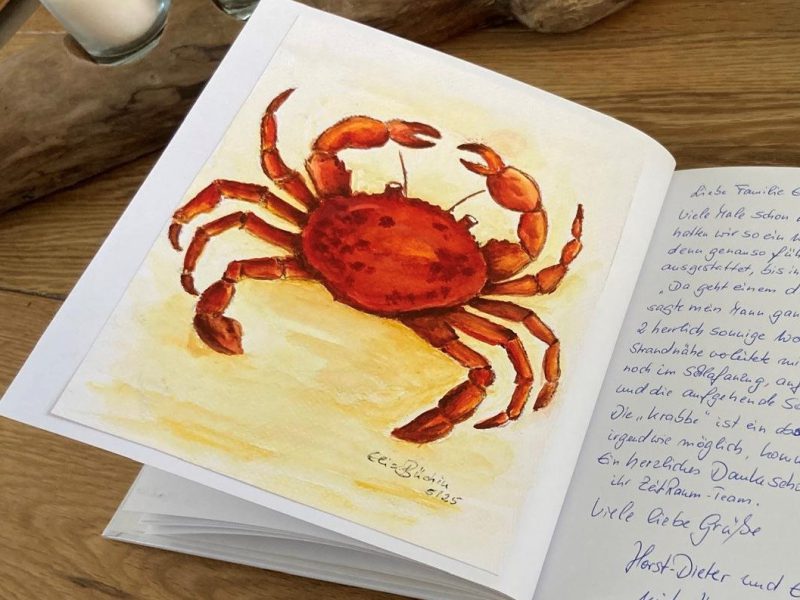 Elis Büchin
5/25
Liebe Familie
Viele Male schon
hatten wir so ein
denn genauso
ausgestattet, bis in
"Da geht einem
sagte mein Mann gan
2 herrlich sonnige Wo
Strandnähe verleitete mi
noch im Schlafanzug, auf
und die aufgehende So
Die „Krabbe" ist ein
irgendwie möglich,
Ein herzliches Dankeschö
ihr ZeitRaum-Team.
Viele liebe Grüße
Horst-Dieter und